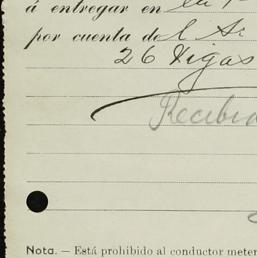 á entregar en la
por cuenta del Sr
26 Vigas
Recibi
Nota. — Está prohibido al conductor meter